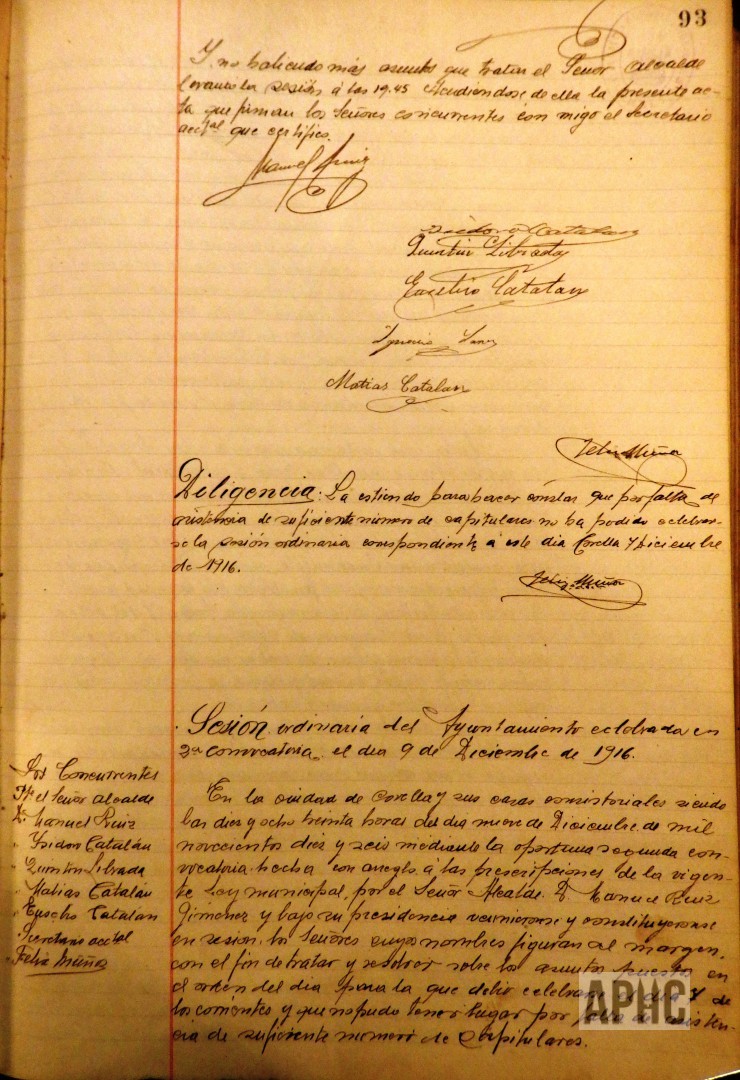 93
Y no habiendo más asuntos que tratar el Señor Alcalde
levantó la sesión á las 19.45 extendiendose de ella la presente ac-
ta que firman los Señores concurrentes con migo el Secretario
acctal que certifico.
Manuel Ruiz
Isidoro Catalan
Quintin Librada
Eusebio Catalan
Ignacio
Matias Catalan
Felix Muñoz
Diligencia: La extiendo para hacer constar que por falta de
asistencia de suficiente número de capitulares no ha podido celebrar-
se la sesión ordinaria correspondiente á este dia Corella 7 Diciembre
de 1916.
Felix Muñoz
Sesión ordinaria del Ayuntamiento celebrada en
2ª convocatoria, el dia 9 de Diciembre de 1916.
Los Concurrentes
Pte el Señor Alcalde
D. Manuel Ruiz
" Ysidoro Catalán
" Quintin Librada
" Matias Catalán
" Eusebio Catalan
Secretario acctal
Felix Muñoz
En la ciudad de Corella y sus casas consistoriales siendo
las diez y ocho treinta horas del dia nueve de Diciembre de mil
novecientos diez y seis mediante la oportuna segunda con-
vocatoria hecha con arreglo á las prescripciones de la vigen-
te Ley municipal, por el Señor Alcalde D. Manuel Ruiz
Gimenez y bajo su presidencia reunieronse y constituyeronse
en sesion los Señores cuyos nombres figuran al margen,
con el fin de tratar y resolver sobre los asuntos puestos en
el orden del dia para la que debió celebrarse el dia 7 de
los corrientes y que no pudo tener lugar por falta de asisten-
cia de suficiente número de capitulares.
APHC